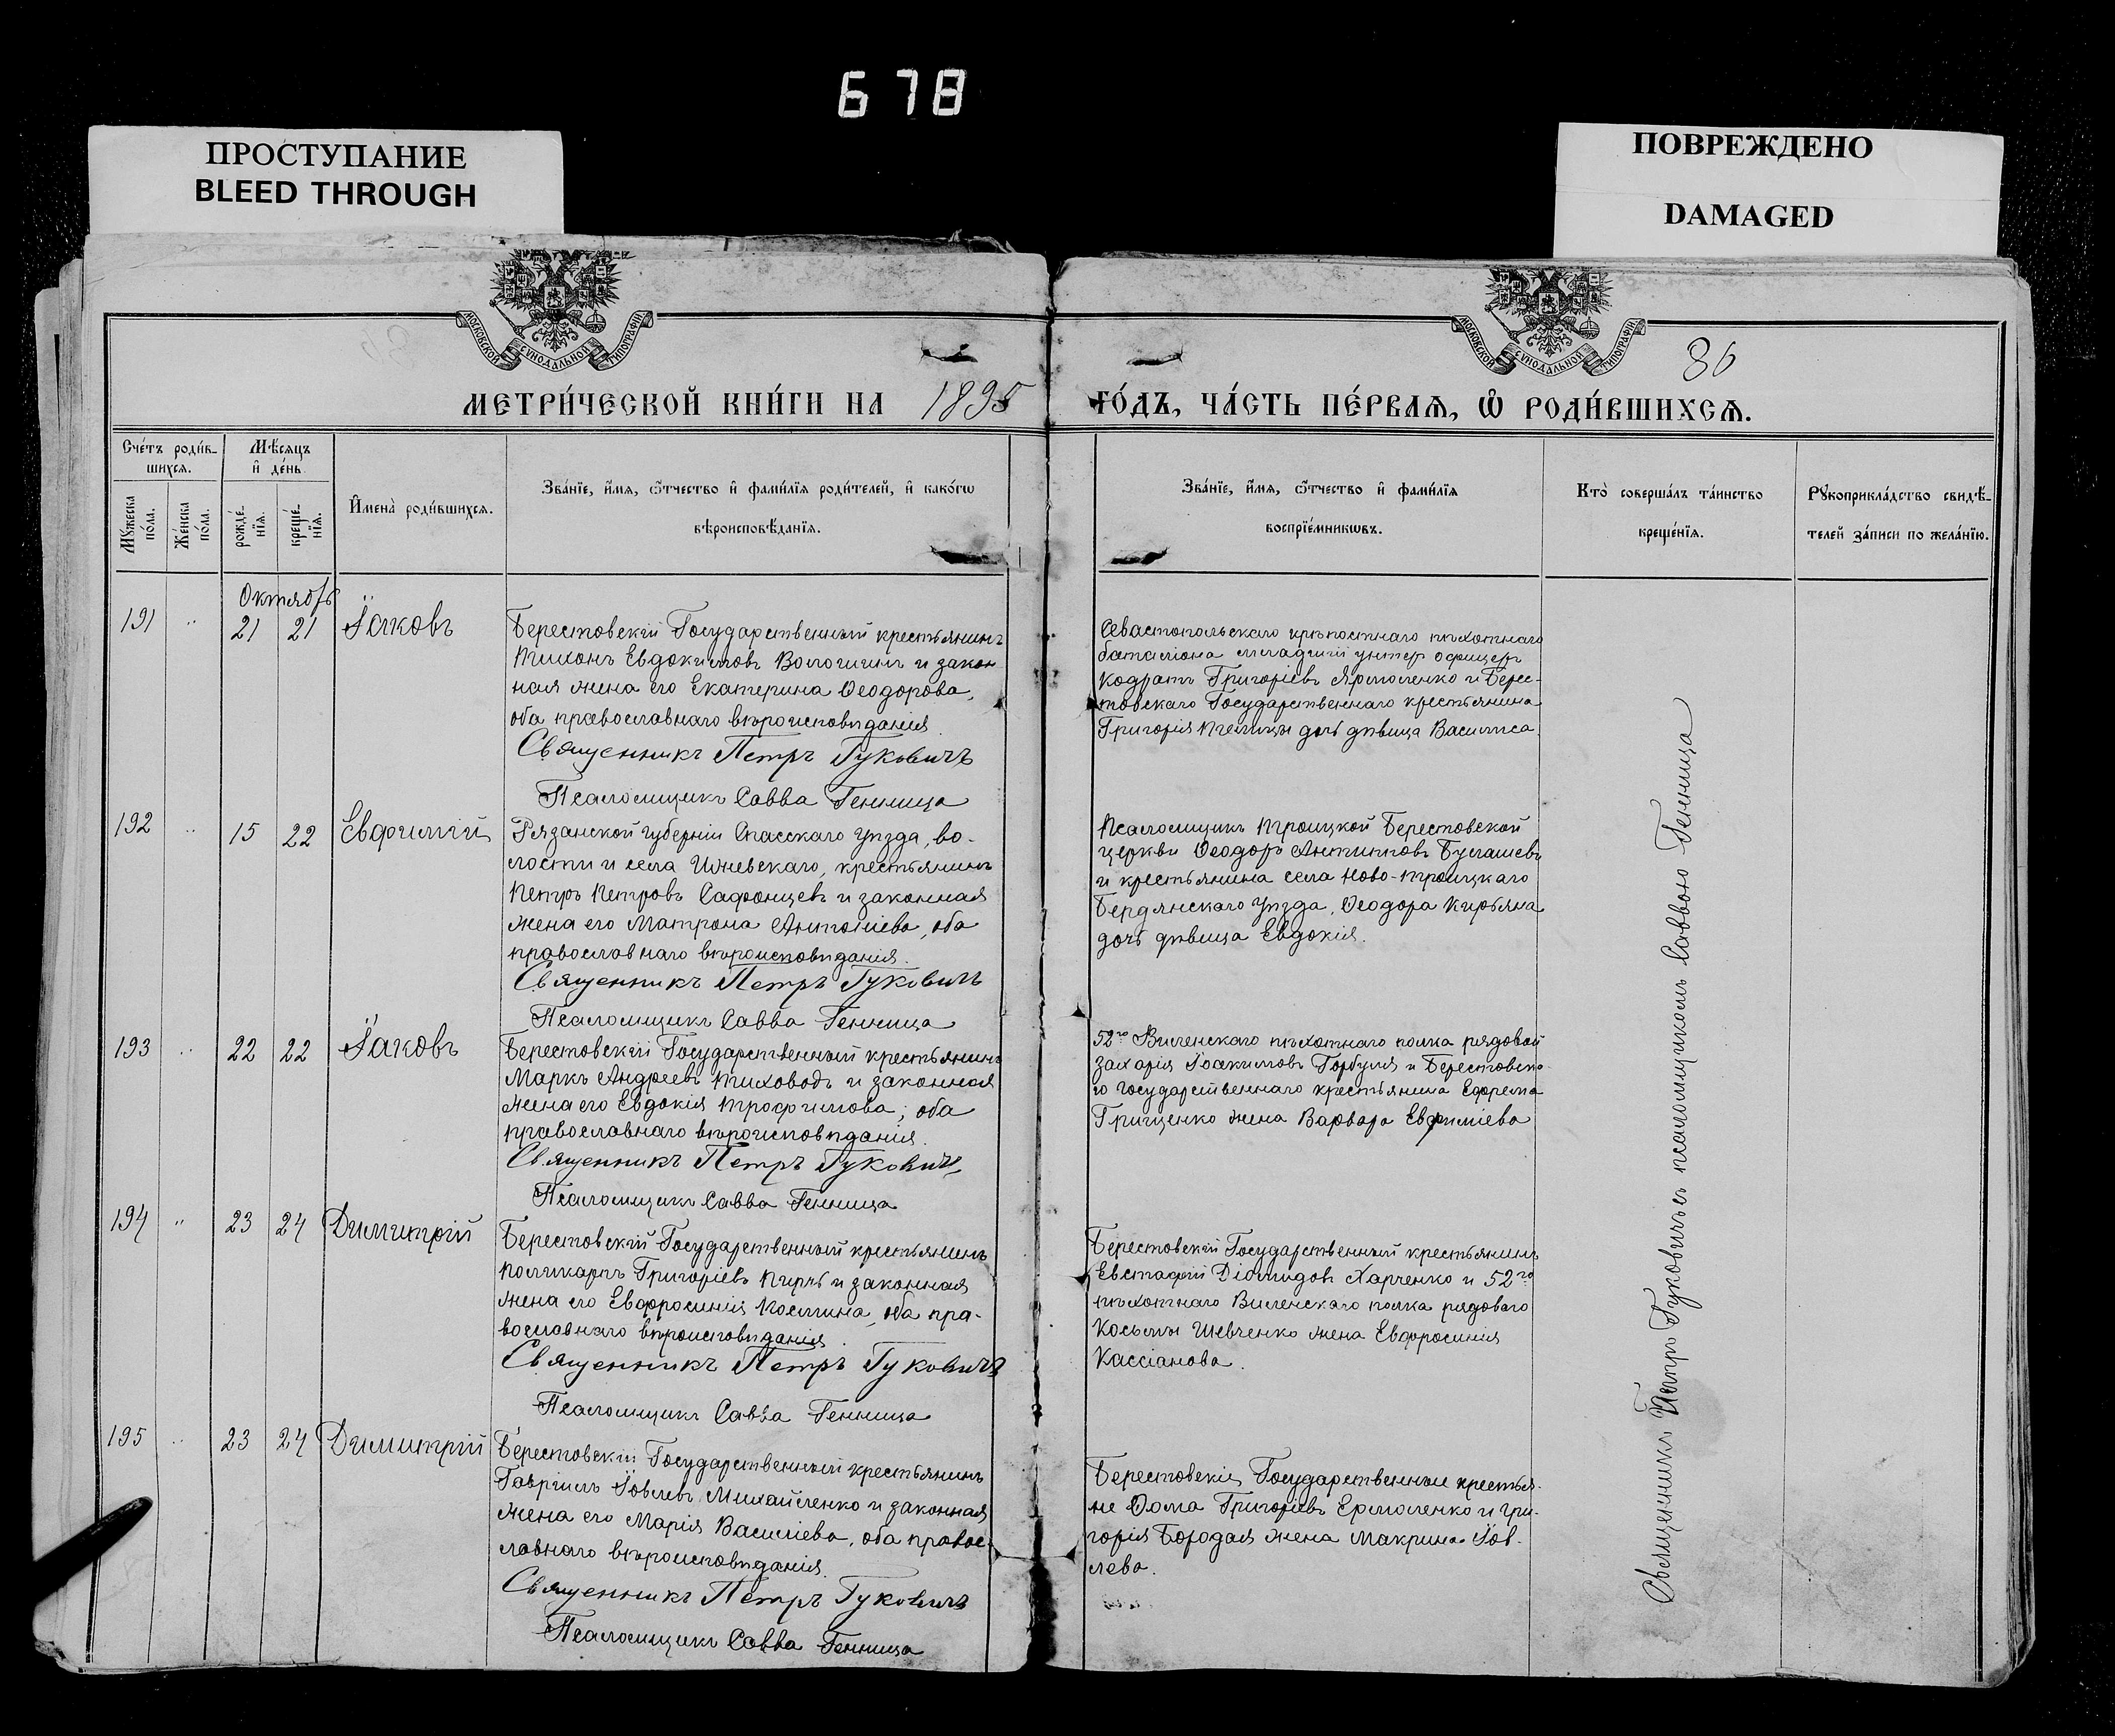 678
ПРОСТУПАНИЕ
BLEED THROUGH
ПОВРЕЖДЕНО
DAMAGED
МОСКОВСКОЙ СѴНОДАЛЬНОЙ ТИПОГРАФІИ
МОСКОВСКОЙ СѴНОДАЛЬНОЙ ТИПОГРАФІИ
36
МЕТРИ́ЧЕСКОЙ КНИ́ГИ НА 1895 ГО́ДЪ, ЧА́СТЬ ПЕ́РВАѦ, Ѿ РОДИ́ВШИХСѦ.
Сче́тъ роди́в-
шихсѧ.
Мꙋ́жеска по́ла.
Же́нска по́ла.
Мѣ́сѧцъ
и҆ де́нь
рожде́-
нїѧ.
креще́-
нїѧ.
И҆мена̀ роди́вшихсѧ.
Зва́нїе, и҆́мѧ, ѻ҆́тчество и҆ фами́лїѧ роди́телей, и҆ како́гѡ
вѣроисповѣ́данїѧ.
Зва́нїе, и҆́мѧ, ѻ҆́тчество и҆ фами́лїѧ
воспрїе́мникѡвъ.
Кто̀ соверша́лъ та́инство
креще́нїѧ.
Рꙋкоприкла́дство свидѣ́-
телей за́писи по жела́нїю.
Октябрь
191 " 21 21 Іаковъ
Берестовскій Государственный крестьянинъ
Тихонъ Евдокимовъ Вологинъ и закон
ная жена его Екатерина Ѳеодорова,
оба православнаго вѣроисповѣданія.
Священникъ Петръ Гуковичъ
Псаломщикъ Савва Генница
Севастопольскаго крѣпостнаго пѣхотнаго
баталіона младшій унтер офицеръ
Кодратъ Григоріевъ Ярмоленко и Берес-
товскаго Государственнаго крестьянина
Григорія дочь дѣвица Васса.
192 " 15 22 Евфимій
Рязанской губерніи Спасскаго уѣзда, во-
лости и села Ижевскаго, крестьянинъ
Петръ Петровъ Сафонцевъ и законная
жена его Матрона Антоніева, оба
православнаго вѣроисповѣданія.
Священникъ Петръ Гуковичъ
Псаломщикъ Савва Генница
Псаломщикъ Троицкой Берестовской
церкви Ѳеодоръ Антиповъ Булашевъ
и крестьянина села Ново-Троицкаго
Бердянскаго уѣзда, Ѳеодора Кирьяна
дочь дѣвица Евдокія.
193 " 22 22 Іаковъ
Берестовскій Государственный крестьянинъ
Маркъ Андреевъ Тиховодъ и законная
жена его Евдокія Трофимова, оба
православнаго вѣроисповѣданія.
Священникъ Петръ Гуковичъ
Псаломщикъ Савва Генница
52го Виленскаго пѣхотнаго полка рядовой
Захарія Іоакимовъ Горбуля и Берестовска-
го Государственнаго крестьянина Ефрема
Грищенко жена Варвара Евфиміева
194 " 23 24 Димитрій
Берестовскій Государственный крестьянинъ
Поликарпъ Григоріевъ и законная
жена его Евфросинія Космина, оба пра-
вославнаго вѣроисповѣданія.
Священникъ Петръ Гуковичъ
Псаломщикъ Савва Генница
Берестовскій Государственный крестьянинъ
Евстафій Діомидовъ Харченко и 52го
пѣхотнаго Виленскаго полка рядоваго
Косьмы Шевченко жена Евфросинія
Кассіанова.
195 " 23 24 Димитрій
Берестовскій Государственный крестьянинъ
Гавріилъ Іовлевъ Михайленко и законная
жена его Марія Василіева, оба правос-
лавнаго вѣроисповѣданія.
Священникъ Петръ Гуковичъ
Псаломщикъ Савва Генница
Берестовскіе Государственные крестья-
не Ѳома Григоріевъ Ермоленко и Гри-
горія Бородая жена Макрина Іов-
лева.
Священникъ Петръ Гуковичъ съ псаломщикомъ Саввою Генница